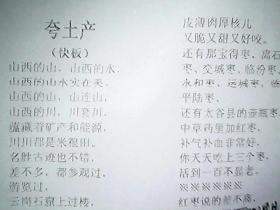 夸土产
（快板）
山西的山，山西的水，
山西的山水实在美，
山西的山，山连山，
山西的川，川套川，
蕴藏着矿产和能源，
川川都是米粮川。
名胜古迹也不错，
差不多，都参观过，
游览过，
云岗石窟上过楼，
皮薄肉厚核儿
又脆又甜又好咬。
还有那宝得枣，离石
枣、交城枣、临汾枣
永和枣、运城枣、临
平陆枣，
还有太谷县的壶瓶枣
中草药里加红枣，
补气补血非常好，
你天天吃上三个枣，
活到一百不显老。
※※※※※※
红枣说的差不离，